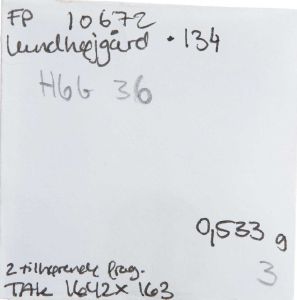 FP 10672
Lundhøjgård • 134
HGG 36
0,533 g
2 tilhørende frag.
3
TAK 1642 x 163